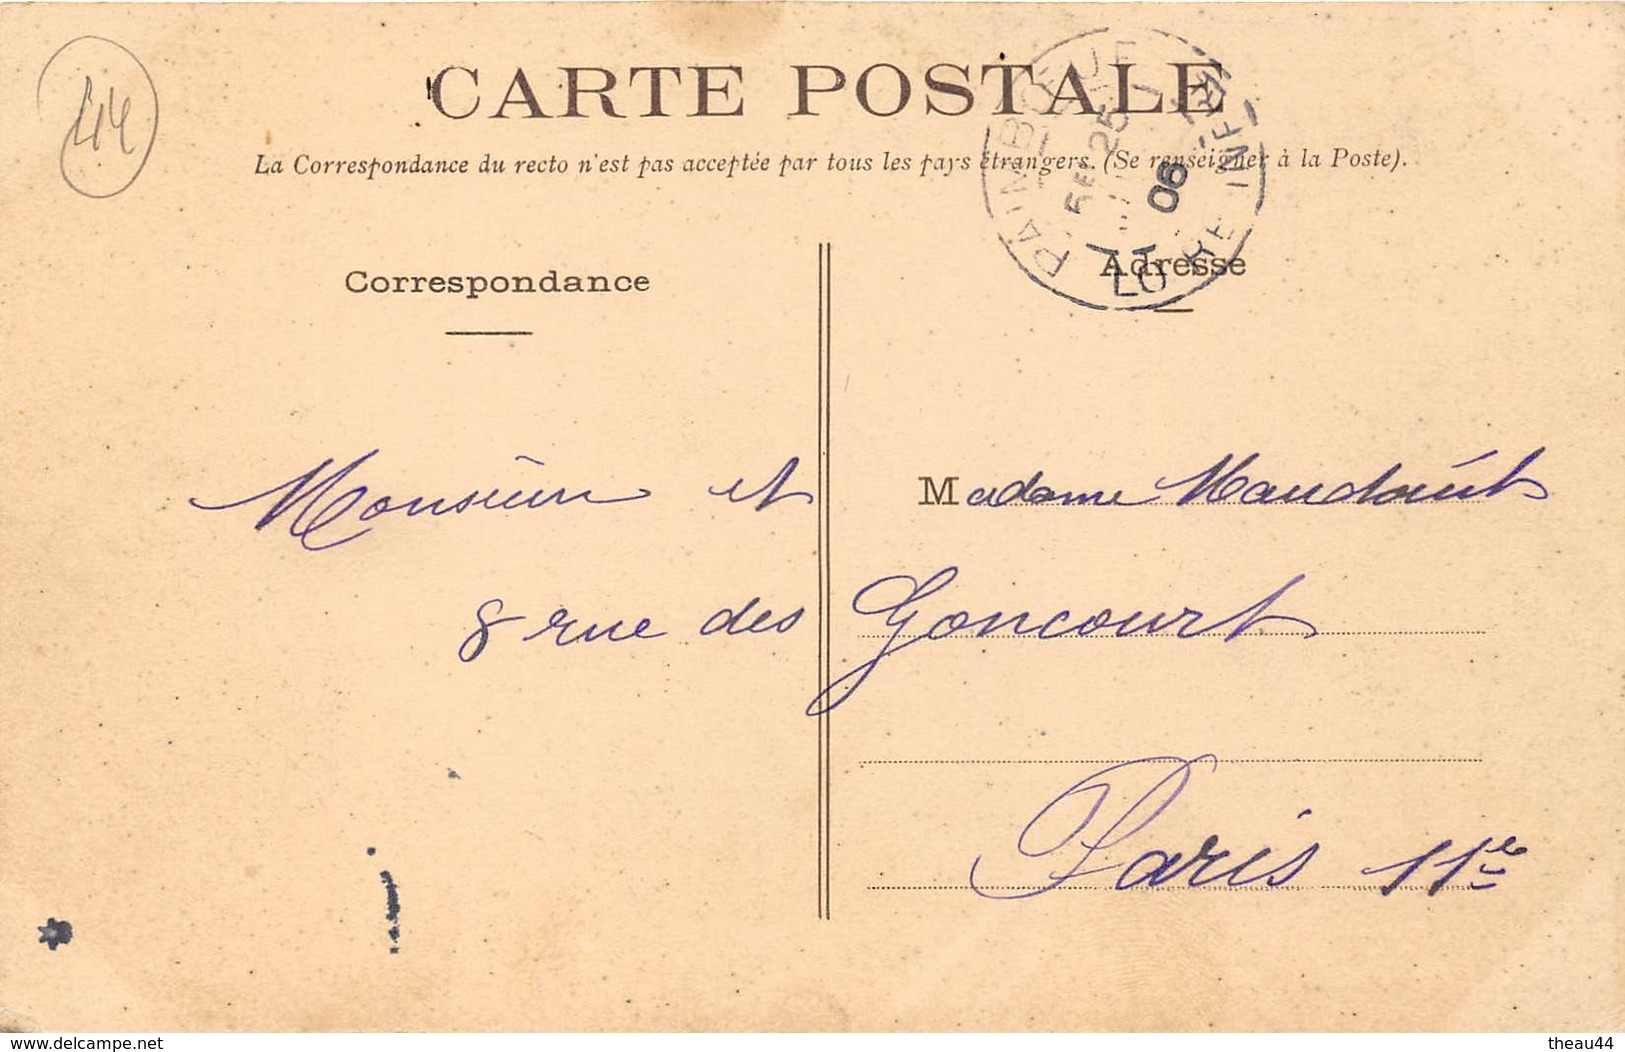 44
CARTE POSTALE
La Correspondance du recto n'est pas acceptée par tous les pays étrangers. (Se renseigner à la Poste).
PAIMBŒUF
25
06
LOIRE INFRE
Correspondance
Adresse
Monsieur et Madame
8 rue des Goncourt
Paris 11e
www.delcampe.net
theau44